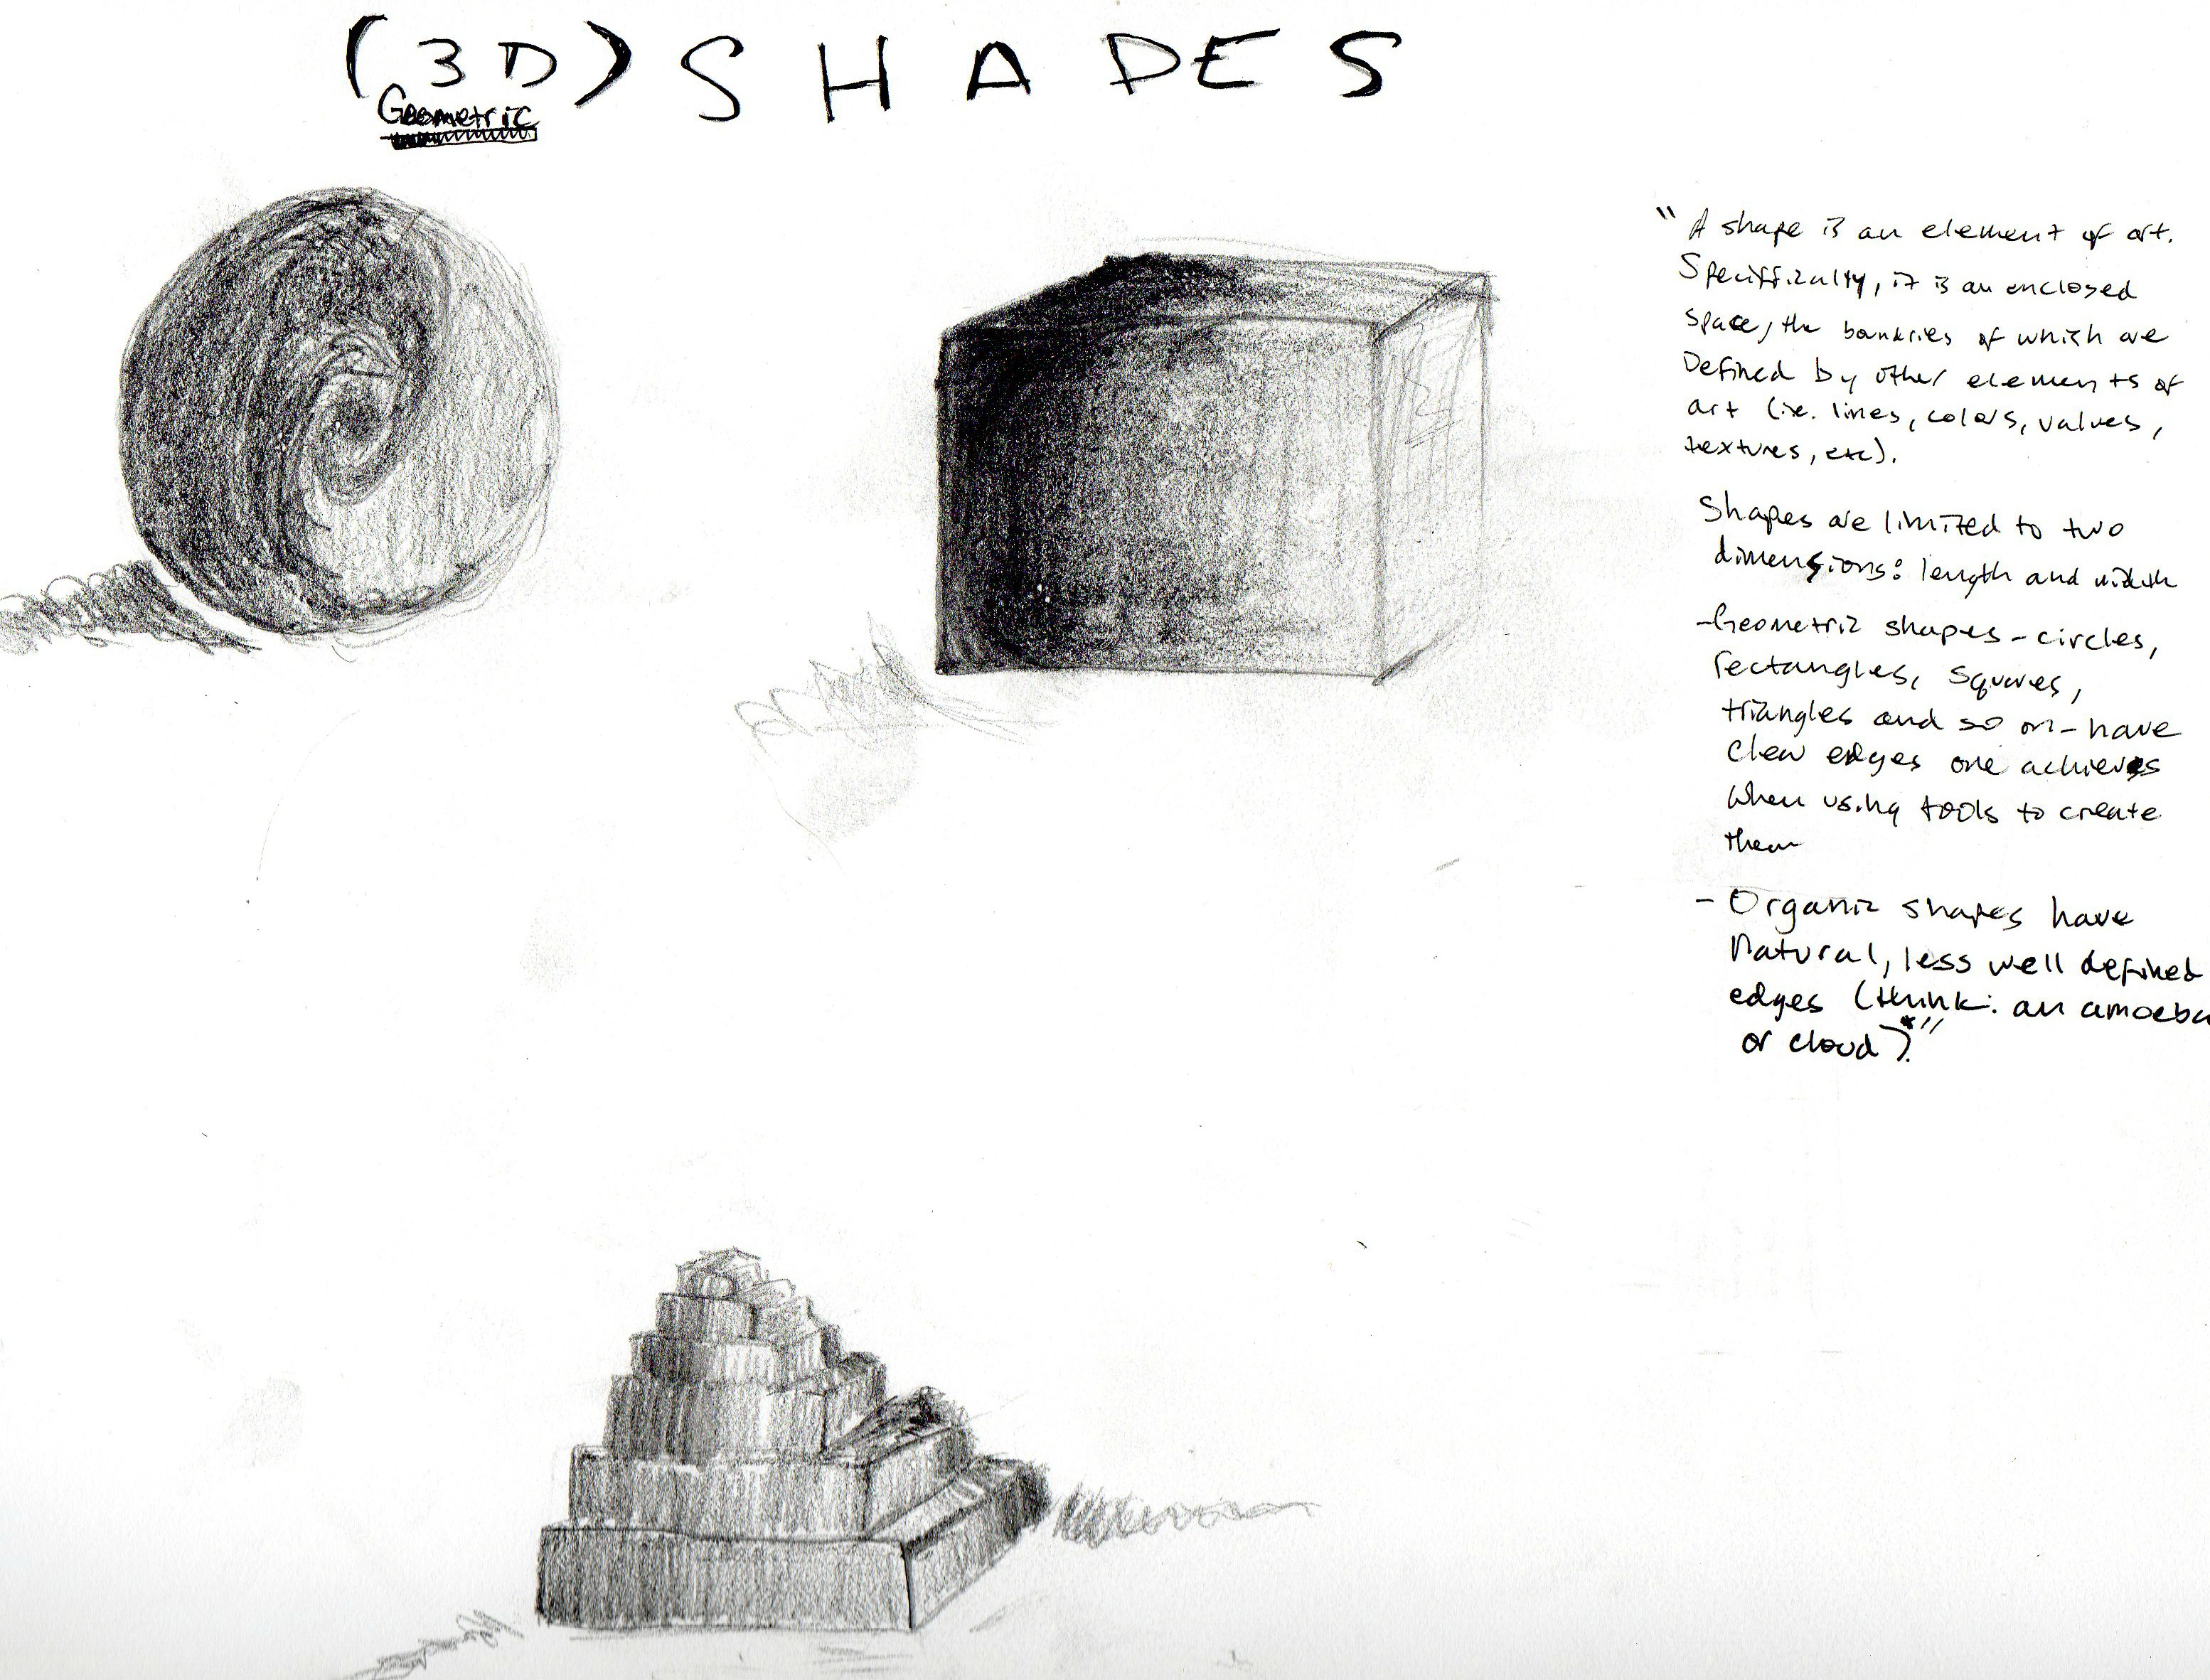 (3D) SHAPES
Geometric
"A shape is an element of art.
Speciffically, it is an enclosed
space, the boundries of which are
Defined by other elements of
art (i.e. lines, colors, values,
textures, etc).
Shapes are limited to two
dimensions: length and width
-Geometric shapes - circles,
rectangles, squares,
triangles and so on - have
clear edges one achieves
when using tools to create
them
- Organic shapes have
Natural, less well defined
edges (think: an amoeba
or cloud)."